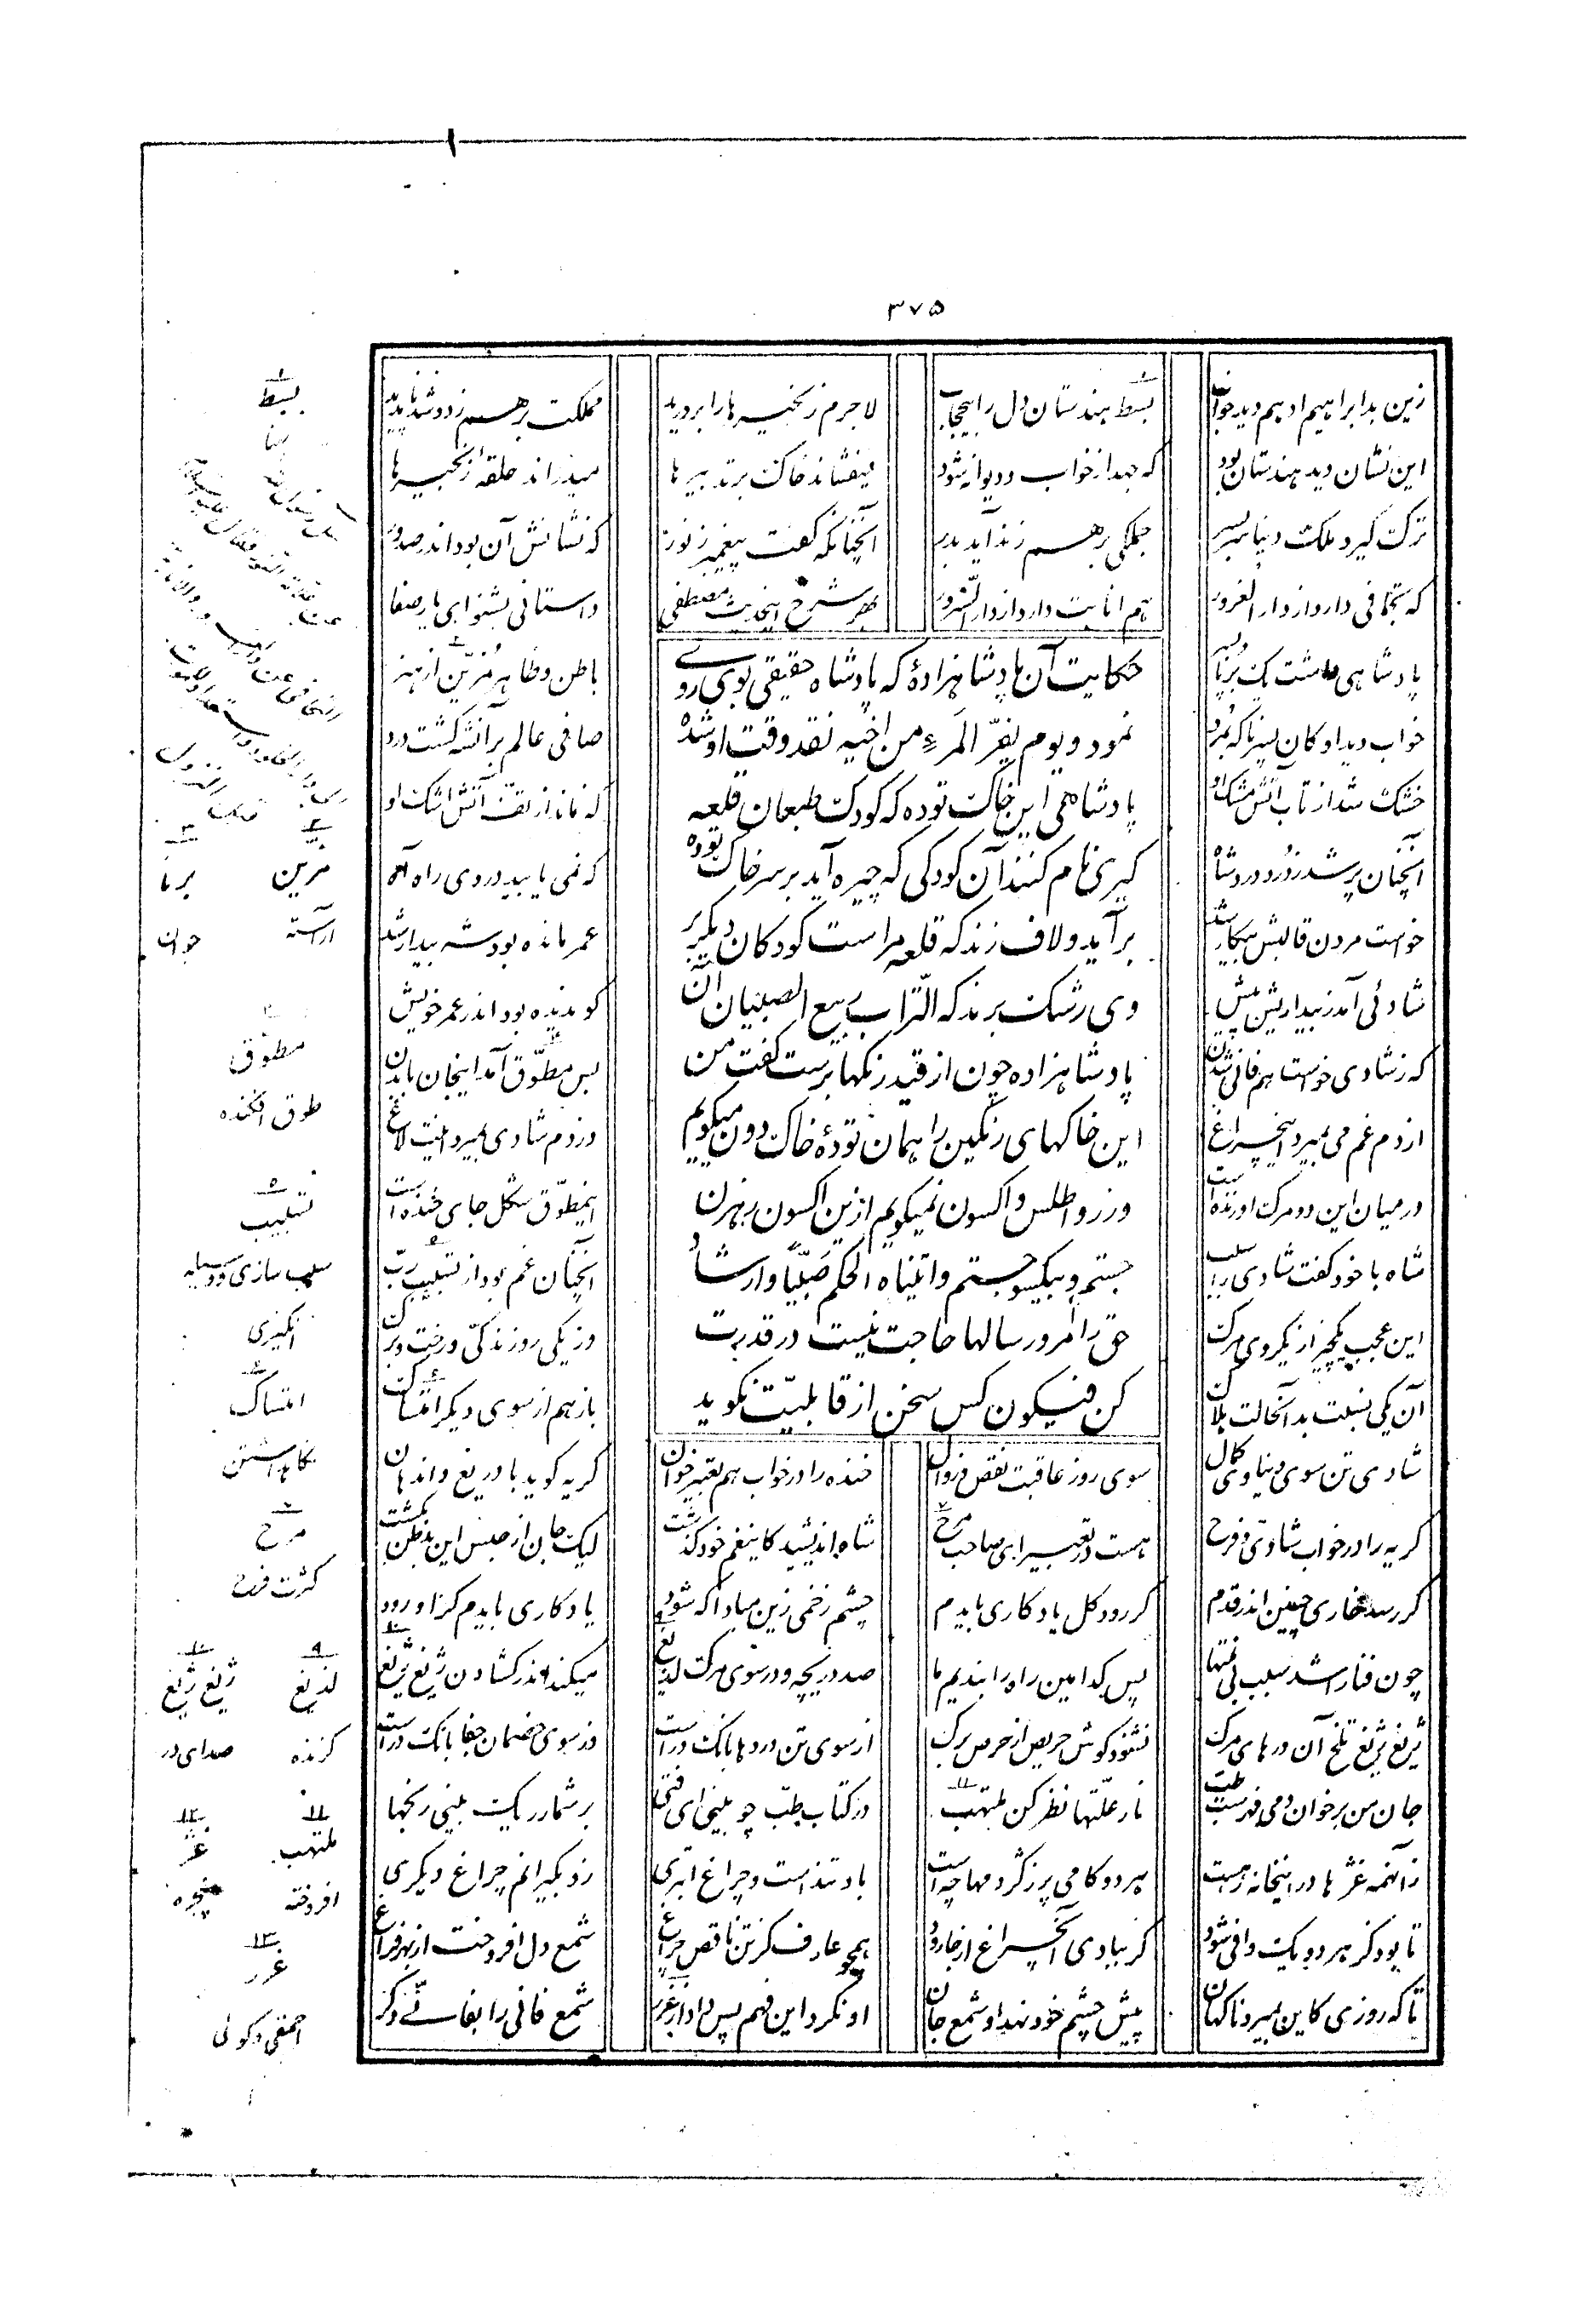 ۳۷۵
زین بد ابراهیم ادهم دید خواب بسط هندستان دل را بیحجاب لاجرم زنجیرها را بردرید مملکت برهم زد و شد ناپدید
این نشان دید هندستان بود که جهد از خواب و دیوانه شود میفشاند خاک بر تدبیرها میدراند حلقهٔ زنجیرها
ترک گیرد ملک دنیا سربسر جملگی برهم زند آید بدر آنچنانکه گفت پیغمبر ز نور که نشانش آن بود اندر صدور
که تجافی دارد از دار الغرور هم انابت دارد از دار السرور بهر شرح این حدیث مصطفی داستانی بشنو ای یار صفا
حکایت آن پادشاهزادهٔ که پادشاه حقیقی بوی روی
نمود و یوم یفرّ المرء من اخیه نقد وقت او شد
پادشاهی این خاک توده که کودک طبعان قلعه
گیری نام کنند آن کودکی که چیره آید بر سر خاک توده
برآید و لاف زند که قلعه مراست کودکان دیگر بر
وی رشک برند که التراب ربیع الصبیان آن
پادشاهزاده چون از قید رنگها برست گفت من
این خاکهای رنگین را همان تودهٔ خاک دون میگویم
و زر و اطلس و اکسون نمیگویم ازین اکسون رهزن
جستم و بیکسو جستم و اتیناه الحکم صبیّا و ارشاد
حق را مرور سالها حاجت نیست در قدرت
کن فیکون کس سخن از قابلیّت نگوید
پادشاهی داشت یک برنا پسر باطن و ظاهر مزیّن از هنر
خواب دید او کان پسر ناگه بمرد صافی عالم بر آن شه گشت درد
خشک شد از تاب آتش مشک او که نماند از تفّ آتش اشک او
آنچنان پر شد ز دود و درد شاه که نمی‌یابید در وی راه آه
خواست مردن قالبش بیکار شد عمر مانده بود شه بیدار شد
شادئی آمد ز بیداریش پیش کو ندیده بود اندر عمر خویش
که ز شادی خواست هم فانی شدن بس مطوّق آمد اینجان با بدن
از دم غم می بمیرد این چراغ وز دم شادی بمیرد اینت لاغ
در میان این دو مرگ او زنده است این مطوّق شکل جای خنده است
شاه با خود گفت شادی را سبب آنچنان غم بود از تسبیب ربّ
این عجب یکچیز از یکروی مرگ وز یکی روی زندگی و رخت و برگ
آن یکی نسبت بدانحالت هلاک باز هم از سوی دیگر امتساک
شادی تن سوی دنیاوی کمال سوی روز عاقبت نقص و زوال خنده را در خواب هم تعبیر خوان گریه گوید با دریغ و اندهان
گریه را در خواب شادی و فرح هست در تعبیر ای صاحب مرح شاه اندیشید کاین غم خود گذشت لیک جان از جنس این بدظن بگشت
گر رسد خاری چنین اندر قدم گر رود گل یادگاری بایدم چشم زخمی زین مبادا که شود یادگاری بایدم گر او رود
چون فنا را شد سبب بی منتها پس کدامین راه را بندیم ما صد دریچه و در سوی مرگ لدیغ میکند اندر گشادن ژیغ ژیغ
ژیغ ژیغ تلخ آن درهای مرگ نشنود گوش حریص از حرص برگ از سوی تن دردها بانگ در است وز سوی خصمان جفا بانگ در است
جان من برخوان دمی فهرست طب نار علّتها نظر کن ملتهب در کتاب طبّ چو بینی ای فتی بر شمار ریگ بینی رنجها
زانهمه غژها در اینخانه ره است هر دو گامی پر ز کژدمها چه است باد تند است و چراغ ابتری زو بگیرانم چراغ دیگری
تا بود کز هر دو یک وافی شود گر ببادی آن چراغ از جا رود همچو عارف کز تن ناقص چراغ شمع دل افروخت از بهر فراغ
تا که روزی کاین بمیرد ناگهان پیش چشم خود نهد او شمع جان او نکرد این فهم پس داد از غرر شمع فانی را بفانئی دگر
۱
بسط
۲
مزین
آراسته
۳
برنا
جوان
۴
مطوّق
طوق افکنده
۵
تسبیب
سبب سازی و وسیله
انگیزی
۶
امتساک
نگاهداشتن
۷
مرح
کثرت فرح
۹
لدیغ
گزنده
۱۰
ژیغ ژیغ
صدای در
۱۱
ملتهب
افروخته
۱۲
غژ
پنجره
۱۳
غرر
احمقی و گولی